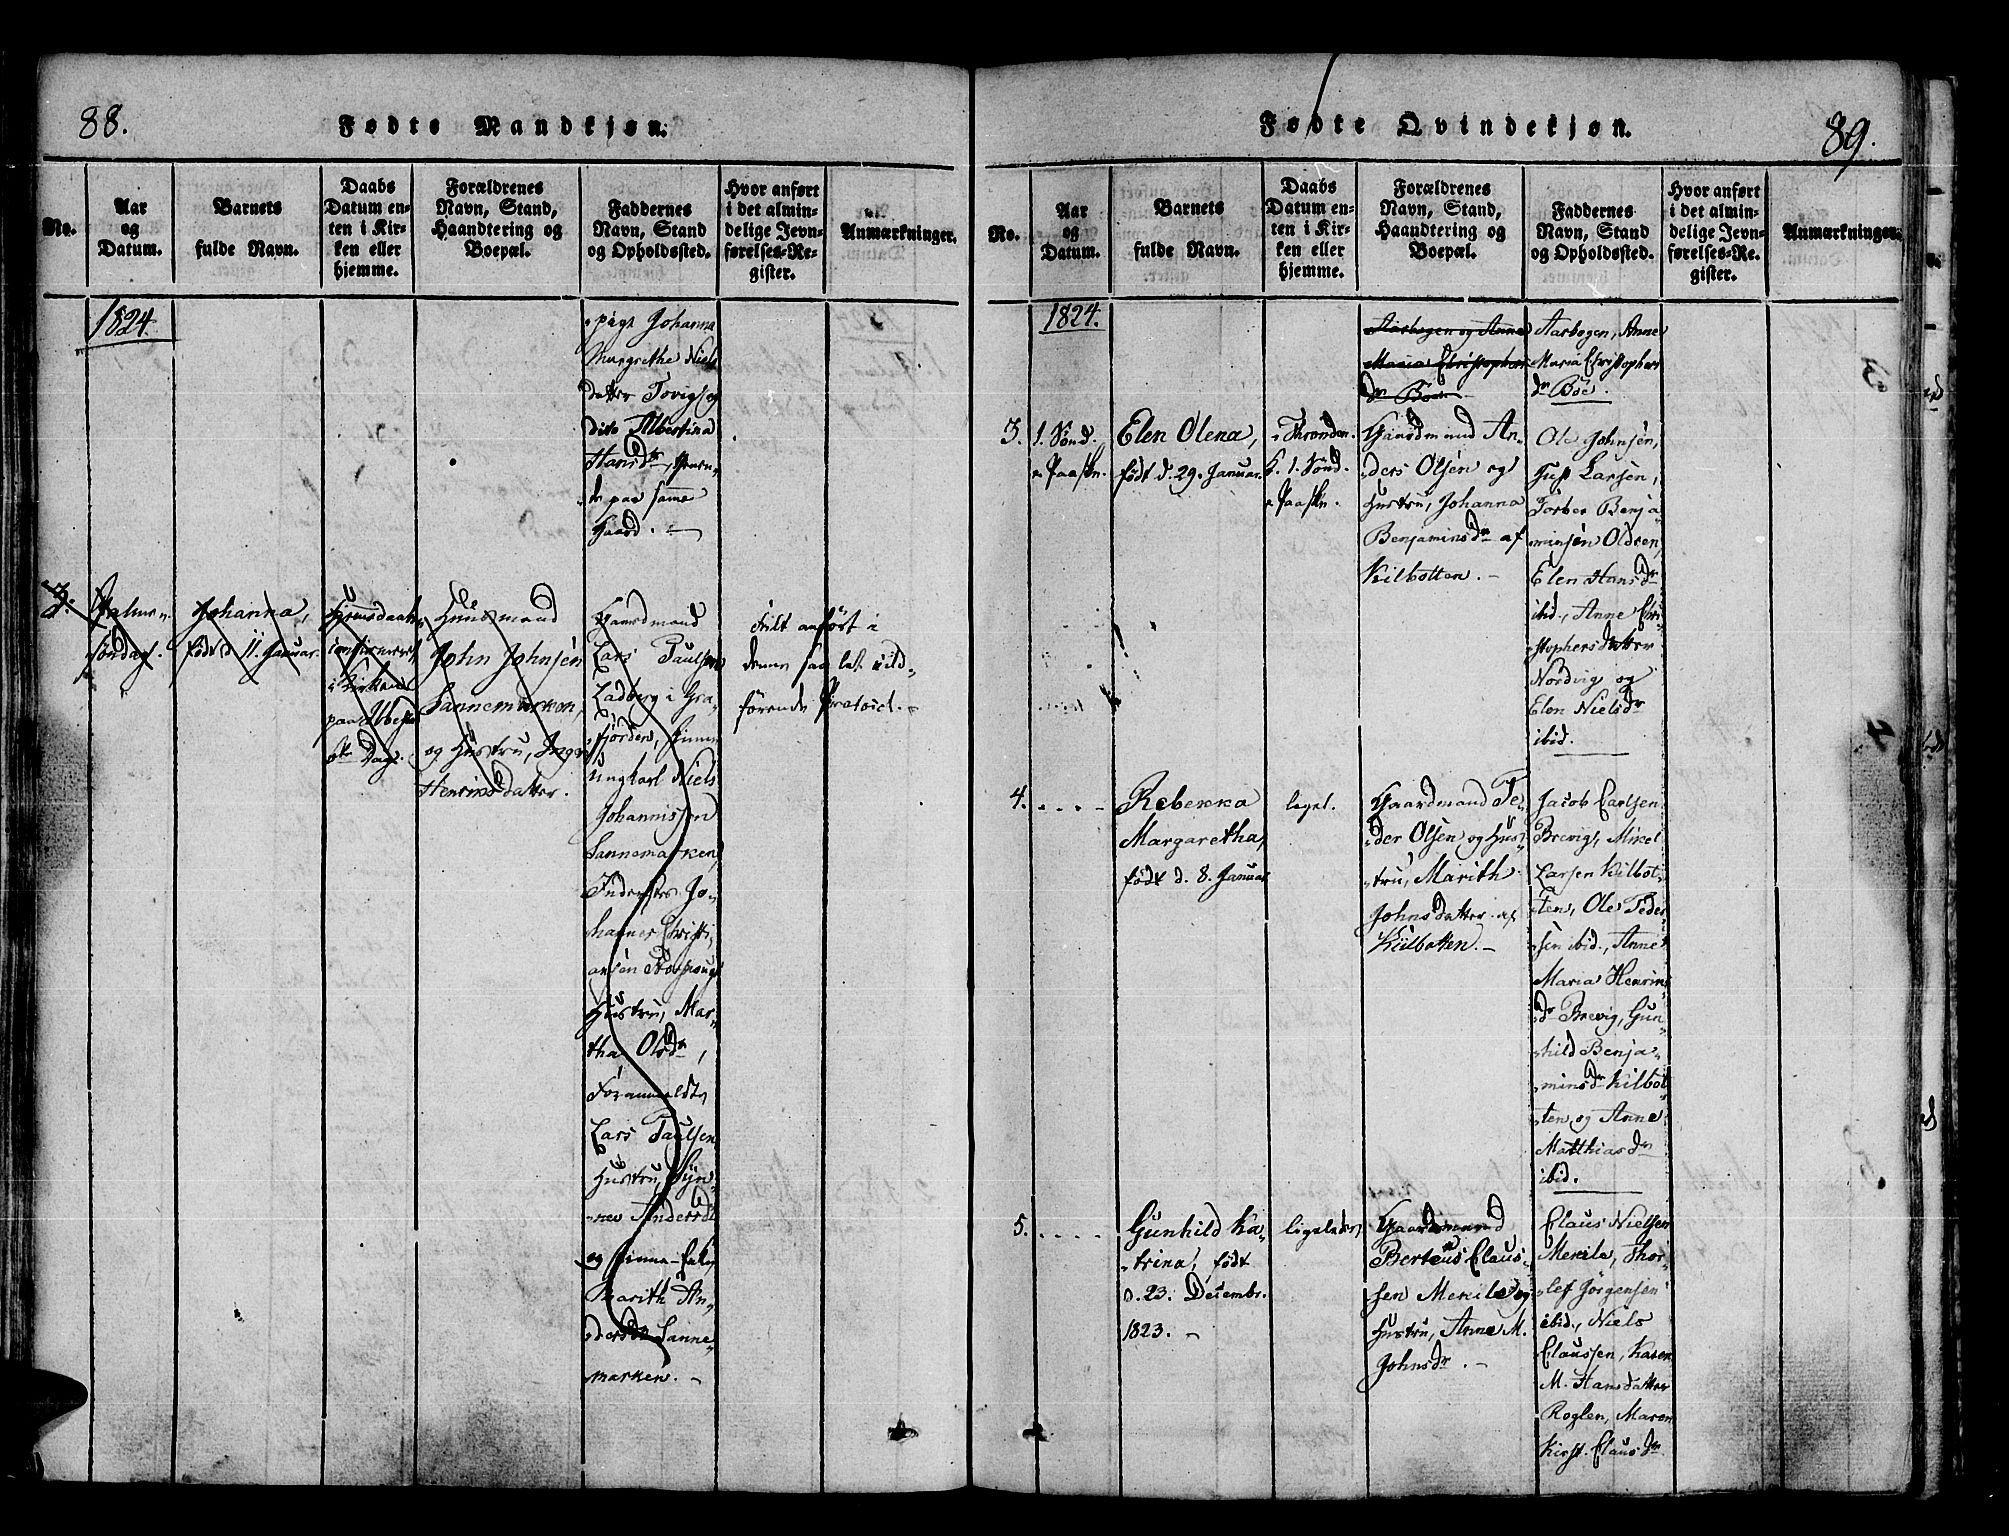 88.
Fødte Mandkjøn.
No.
Aar
og
Datum.
Barnets
fulde Navn.
Daabs
Datum en-
ten i Kir-
ken eller
hjemme.
Forældrenes
Navn, Stand,
Haandtering og
Boepæl.
Faddernes
Navn, Stand
og Opholdssted.
Hvor anført
i det almin-
delige Jevn-
førelses-Re-
gister.
Anmærkninger.
1824.
Johanna
Margrethe Niels
datter Tovig, og
dito Albertina
Hansdr,
paa samme
Gaard. -
3.
Palme-
søndag.
Johanna,
født d. 11. Januar.
Hjemmedaab
i Kirken
paa
Dag.
Huusmand
John Johnsen
Sannemarken,
og Hustru, Inger
Henriksdatter.
Gaardmand
Lars Paulsen
Ladberg i Gra-
fjorden,
Ungkarl Niels
Johannissen
Sannemarken,
Inderster Jo-
hannes Christi-
ansen
Hustru, Mar-
tha Olsdr,
Foranmeldte
Lars Paulsen
Hustru, Syn-
nev Andersdr
og
Marith An-
dersdr Sanne-
marken. -
feilt anført i
denne
førende Protocol. -
89.
Fødte Qvindekjøn.
No.
Aar
og
Datum.
Barnets
fulde Navn.
Daabs
Datum en-
ten i Kir-
ken eller
hjemme.
Forældrenes
Navn, Stand,
Haandtering og
Boepæl.
Faddernes
Navn, Stand
og Opholdssted.
Hvor anført
i det almin-
delige Jevn-
førelses-Re-
gister.
Anmærkninger.
1824.
Aasbogen og Anne
Maria Christophers
dr Böe
Aarbogen, Anne
Maria Christophers
dr Böe.
3.
1. Sönd.
e. Paaskn.
Elen Olena,
født d. 29. Januar.
i Thronden.
K. 1. Sönd.
e. Paaskn.
Gaardmand An-
ders Olsen og
Hustru, Johanna
Benjaminsdr af
Kilbotten. -
Ole Johnsen,
Larsen,
Torber Benja-
minsen Oldren,
Elen Hansdr
ibid., Anne Chri-
stophersdatter
Nordvig og
Elen Nielsdr
ibid.
4. . . . .
Rebekka
Margaretha,
født d. 8. Januar
ligel.
Gaardmand Pe-
der Olsen og Hus-
tru, Marith
Johnsdatter af
Kiilbotten. -
Jacob Carlsen
Brevig, Mikel
Larsen Kilbot-
ten, Ole Peder-
sen ibid., Anne
Maria Henriks
dr Brevig, Gun-
hild Benja-
minsdr Kilbot-
ten, og Anne
Matthiasdr
ibid.
5. . . . .
Gunhild Ka-
trina, født
d. 23. Decembr.
1823. -
ligeledes,
Gaardmand
Berteus Claus-
sen Mekile og
Hustru, Anne M.
Johnsdr. -
Claus Nielsen
Mekile, Thor-
lef Jörgensen
ibid., Niels
Claussen, Karen
M. Hansdatter
Roglen, Maren
Kirst. Clausdr